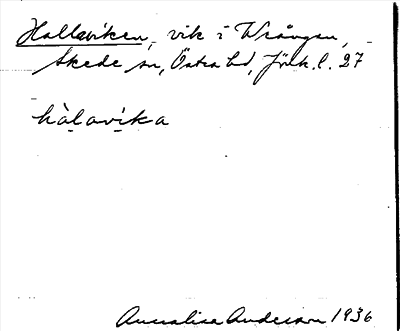 Hallaviken, vik i Wrången,
Skede sn, Östra hd, Jönk. l. 27
hàlavíka
Annalisa Anderson 1936